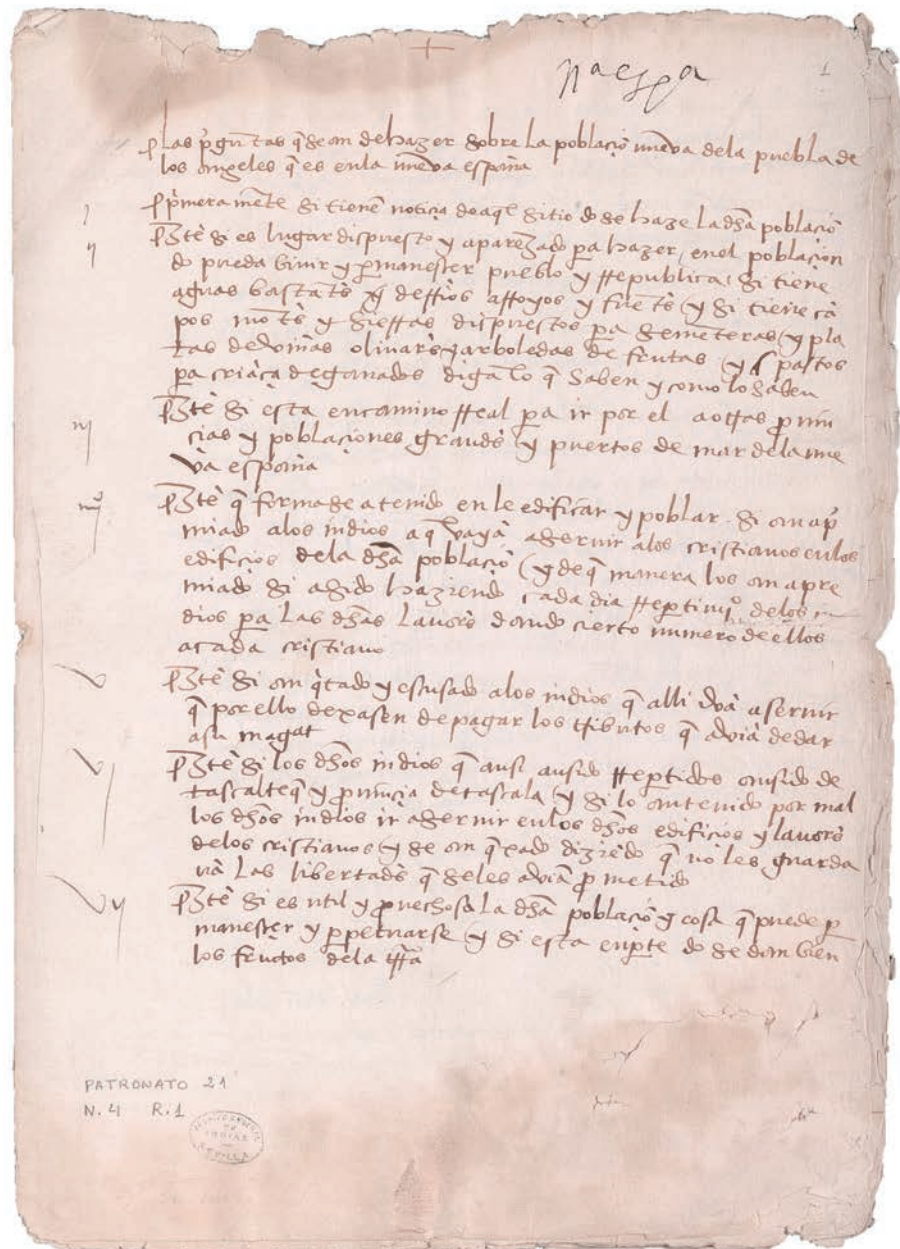 nªespª
1
las pguntas q se an de hazer sobre la població nueva dela puebla de
los angeles q es enla nueva españa
j
primera mēte si tienē noticia de aql sitio do se haze la dha població
ij
yte si es lugar dispuesto y aparejado pa hazer enel poblacion
do pueda bivir y pmanescer pueblo y rrepublica si tiene
aguas bastātes y de rrios arroyos y fuētes y si tiene cā
pos mōtes y sierras dispuestos pa semēteras y plā
tas de viñas olivares y arboledas de frutas y pastos
pa criāça de ganados digā lo q saben y como lo saben
iij
yte si esta en camino rreal pa ir por el a otras provin
cias y poblaciones grandes y puertos de mar dela nue
va españa
iiijº
yte q forma se a tenido en le edificar y poblar si an ap
miado alos indios a q vayā a servir alos cristianos enlos
edificios dela dha població y de q manera los an apre
miado si a sido haziendo cada dia rrepartimiº delos in
dios pa las dhas lavores dando cierto numero de ellos
a cada cristiano
v
yte si an qtado y escusado alos indios q alli ivā a servir
q por ello dexasen de pagar los tributos q aviā de dar
a su magat
vj
yte si los dhos indios q ansi an sido rrepartidos an sido de
tascalteq y provincia de tascala y si lo an tenido por mal
los dhos indios ir a servir enlos dhos edificios y lavores
delos cristianos y se an qxado diziēdo q no les guarda
vā las libertades q se les aviā prometido
vij
yte si es util y provechosa la dha població y cosa q puede p
manescer y ppetuarse y si esta en pte do se dan bien
los frutos dela trra
PATRONATO 21
N. 4 R. 1
ARCHIVO GENERAL
DE
INDIAS
SEVILLA